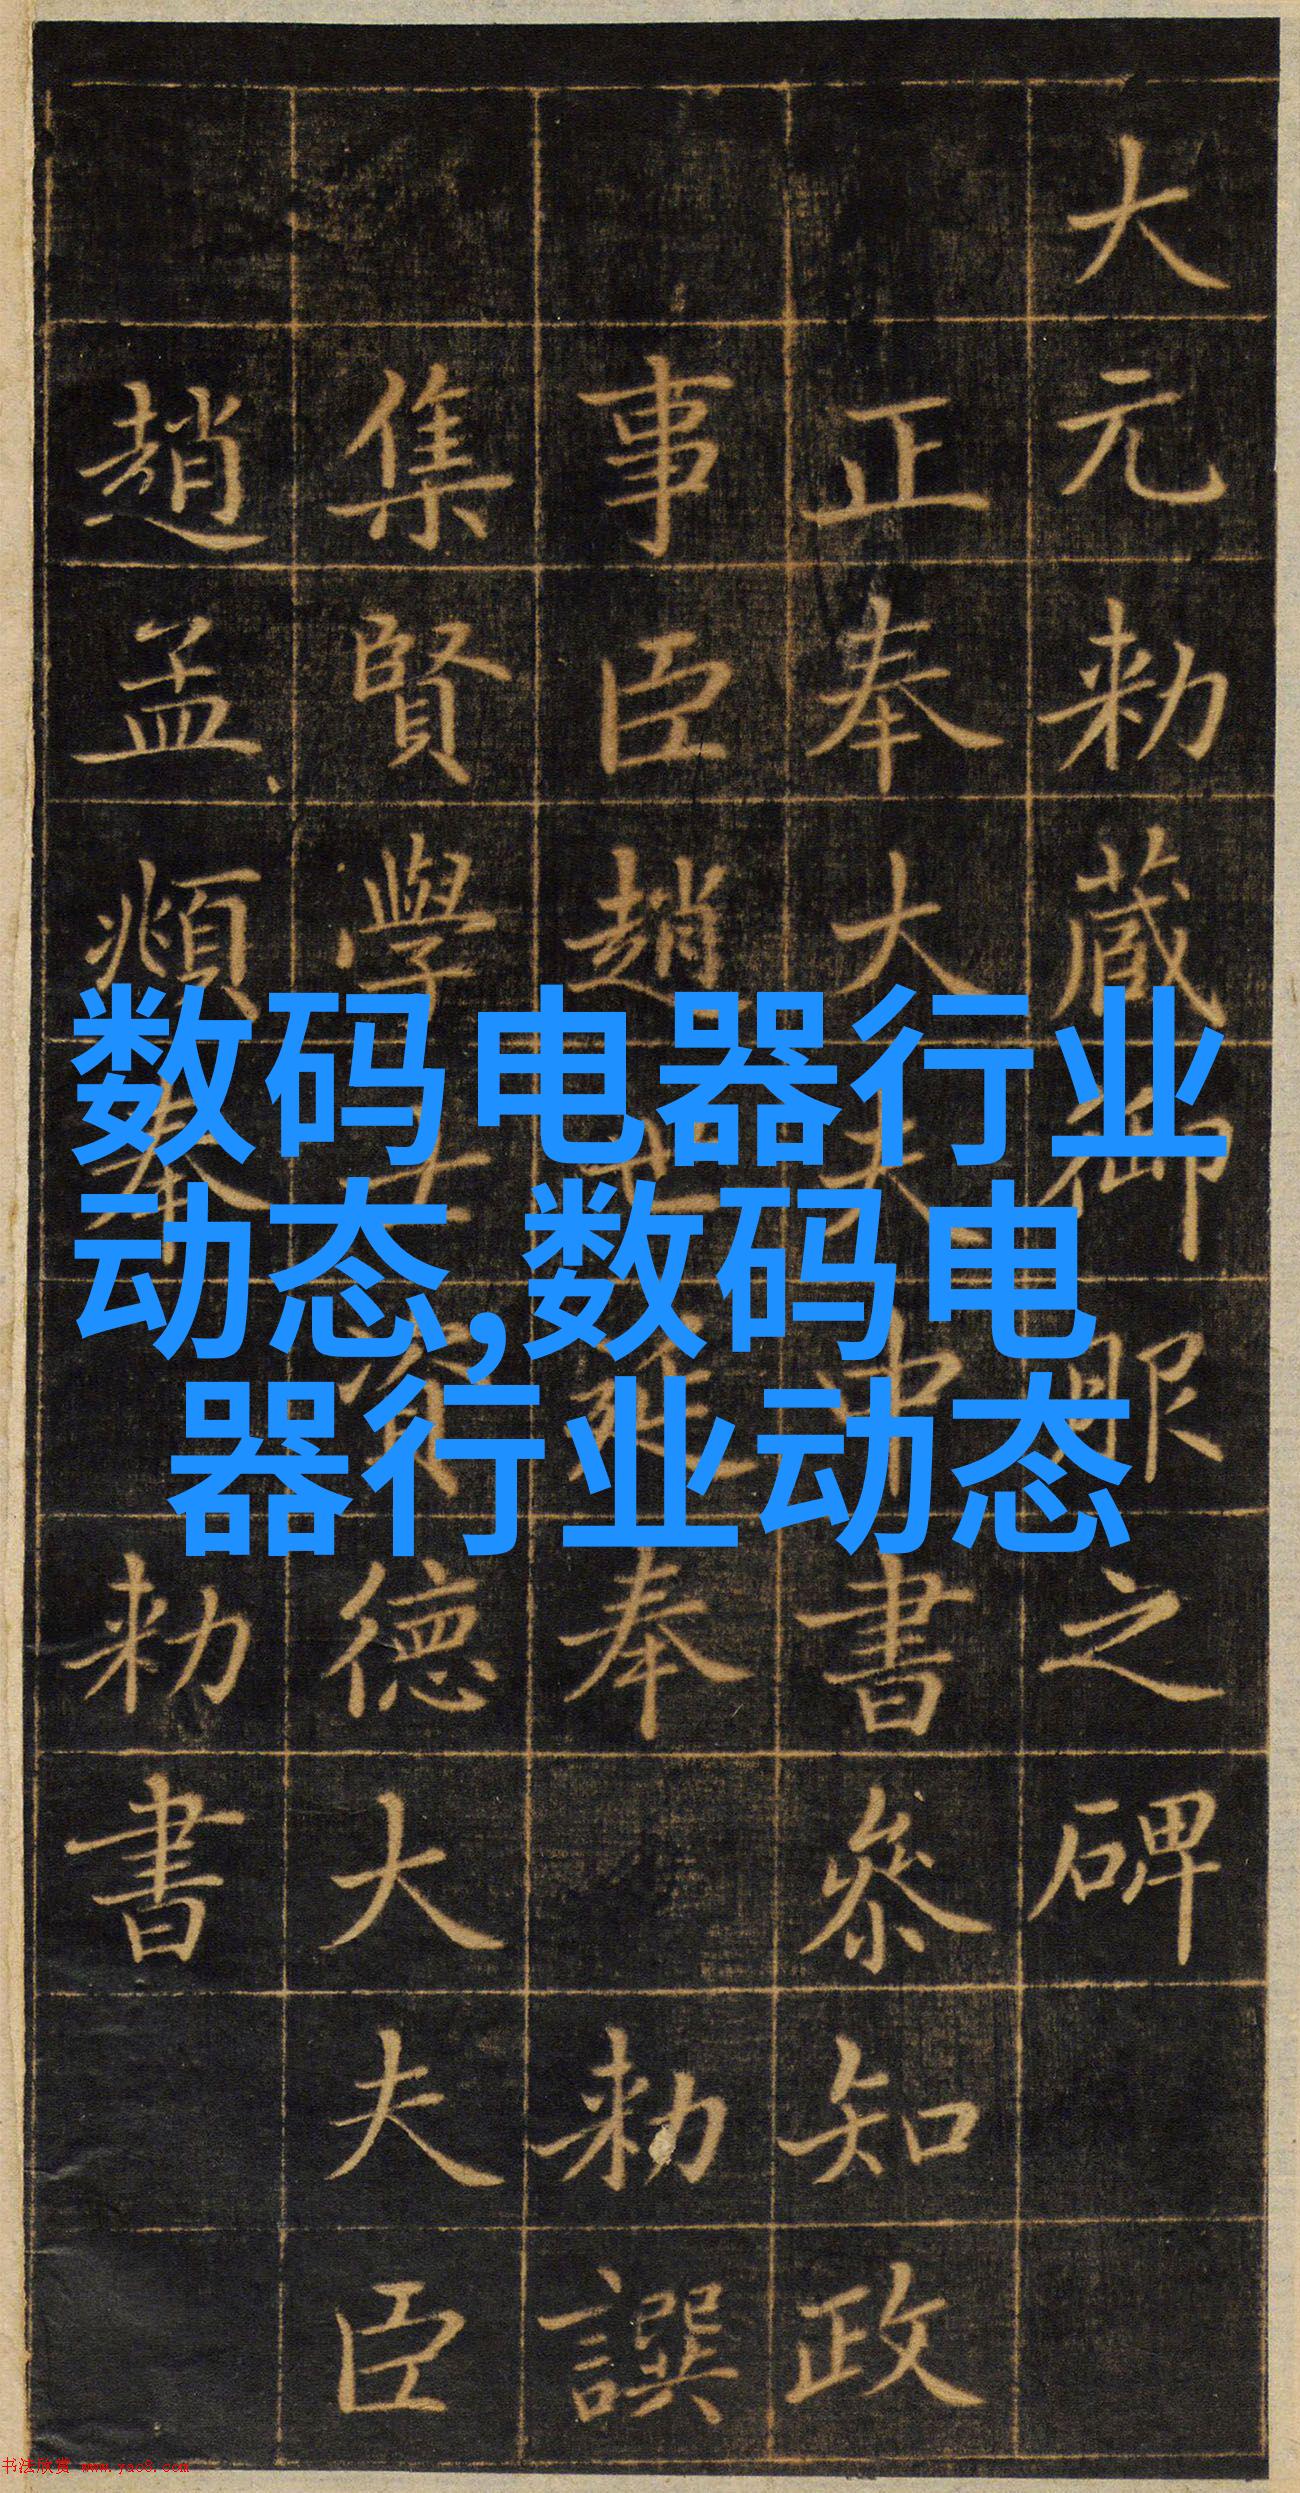 大元勑蔵御服之碑
正奉大夫中書叅知政
事臣趙世延奉勑譔
集賢學士資德大夫臣
趙孟頫奉勑書
数码电器行业
动态,数码电
器行业动态
书法欣赏 www.yac8.com